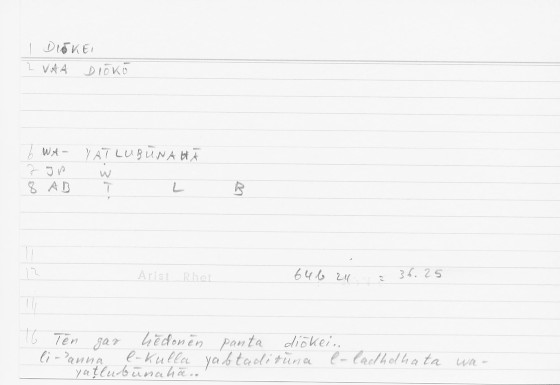 1 DIŌKEI
2 VAA DIŌKŌ
6 WA- YAṬLUBŪNAHĀ
7 JP W
8 AB Ṭ L B
11
12 Arist Rhet 64b 24 = 36.25
14
16 Tēn gar hēdonēn panta diōkei..
li-ʾanna l-kulla yabtadirūna l-ladhdhata wa-
yaṭlubūnahā..